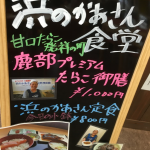 浜のかあさん
食堂
甘口たらこ
発祥の町
鹿部プレミアム
たらこ御膳
¥1,000円
浜のかあさん定食
¥800円